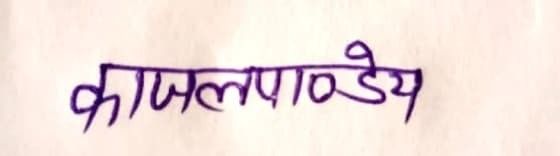 काजलपाण्डेय